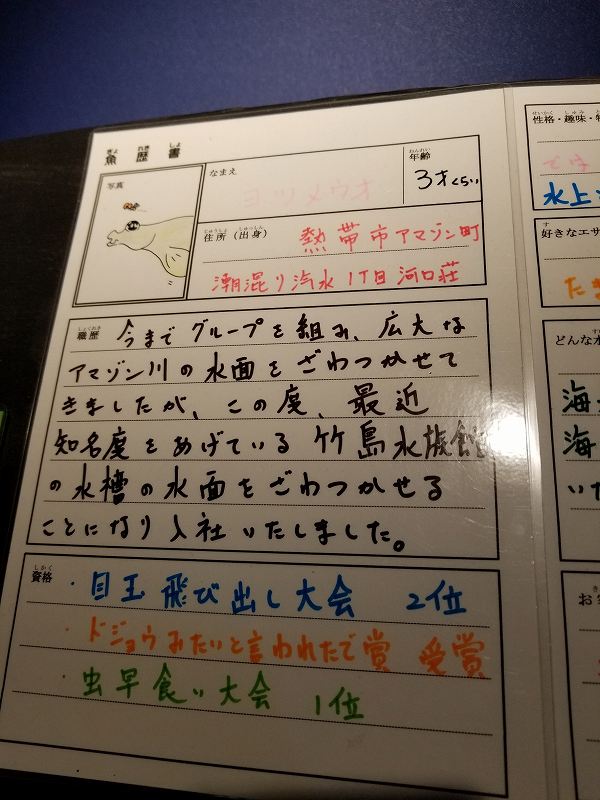 魚歴書
写真
なまえ
ヨツメウオ
年齢
3才くらい
住所（出身）
熱帯市アマゾン町
潮混り汽水1丁目河口荘
職歴
今までグループを組み、広大な
アマゾン川の水面をざわつかせて
きましたが、この度、最近
知名度をあげている竹島水族館
の水槽の水面をざわつかせる
ことになり入社いたしました。
資格
・目玉飛び出し大会 2位
・ドジョウみたいと言われたで賞 受賞
・虫早食い大会 1位
性格・趣味・特
では
水上
好きなエサ
たき
どんな水
海
海
いた
お